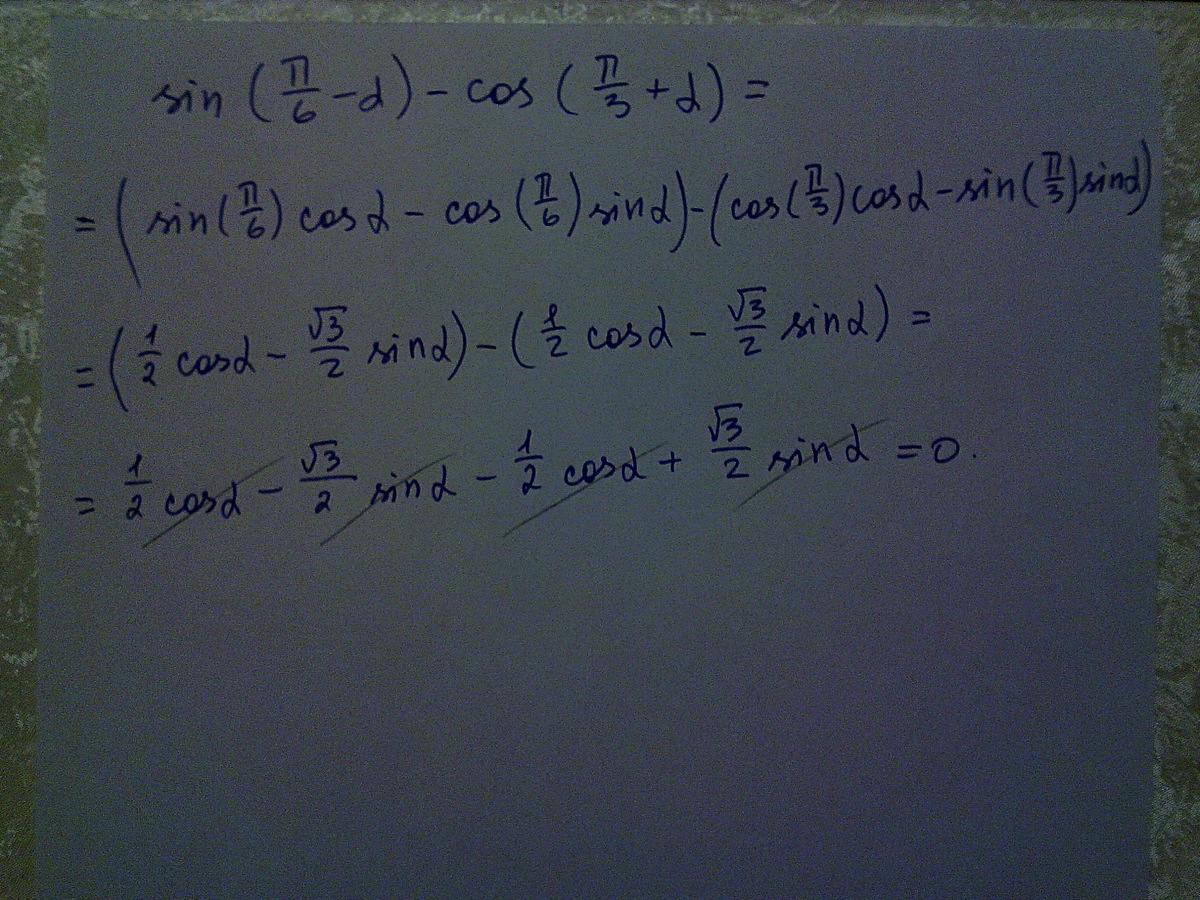 sin (π/6 − α) − cos (π/3 + α) =
= (sin(π/6) cosα − cos(π/6) sinα) − (cos(π/3) cosα − sin(π/3) sinα)
= (1/2 cosα − √3/2 sinα) − (1/2 cosα − √3/2 sinα) =
= 1/2 cosα − √3/2 sinα − 1/2 cosα + √3/2 sinα = 0.